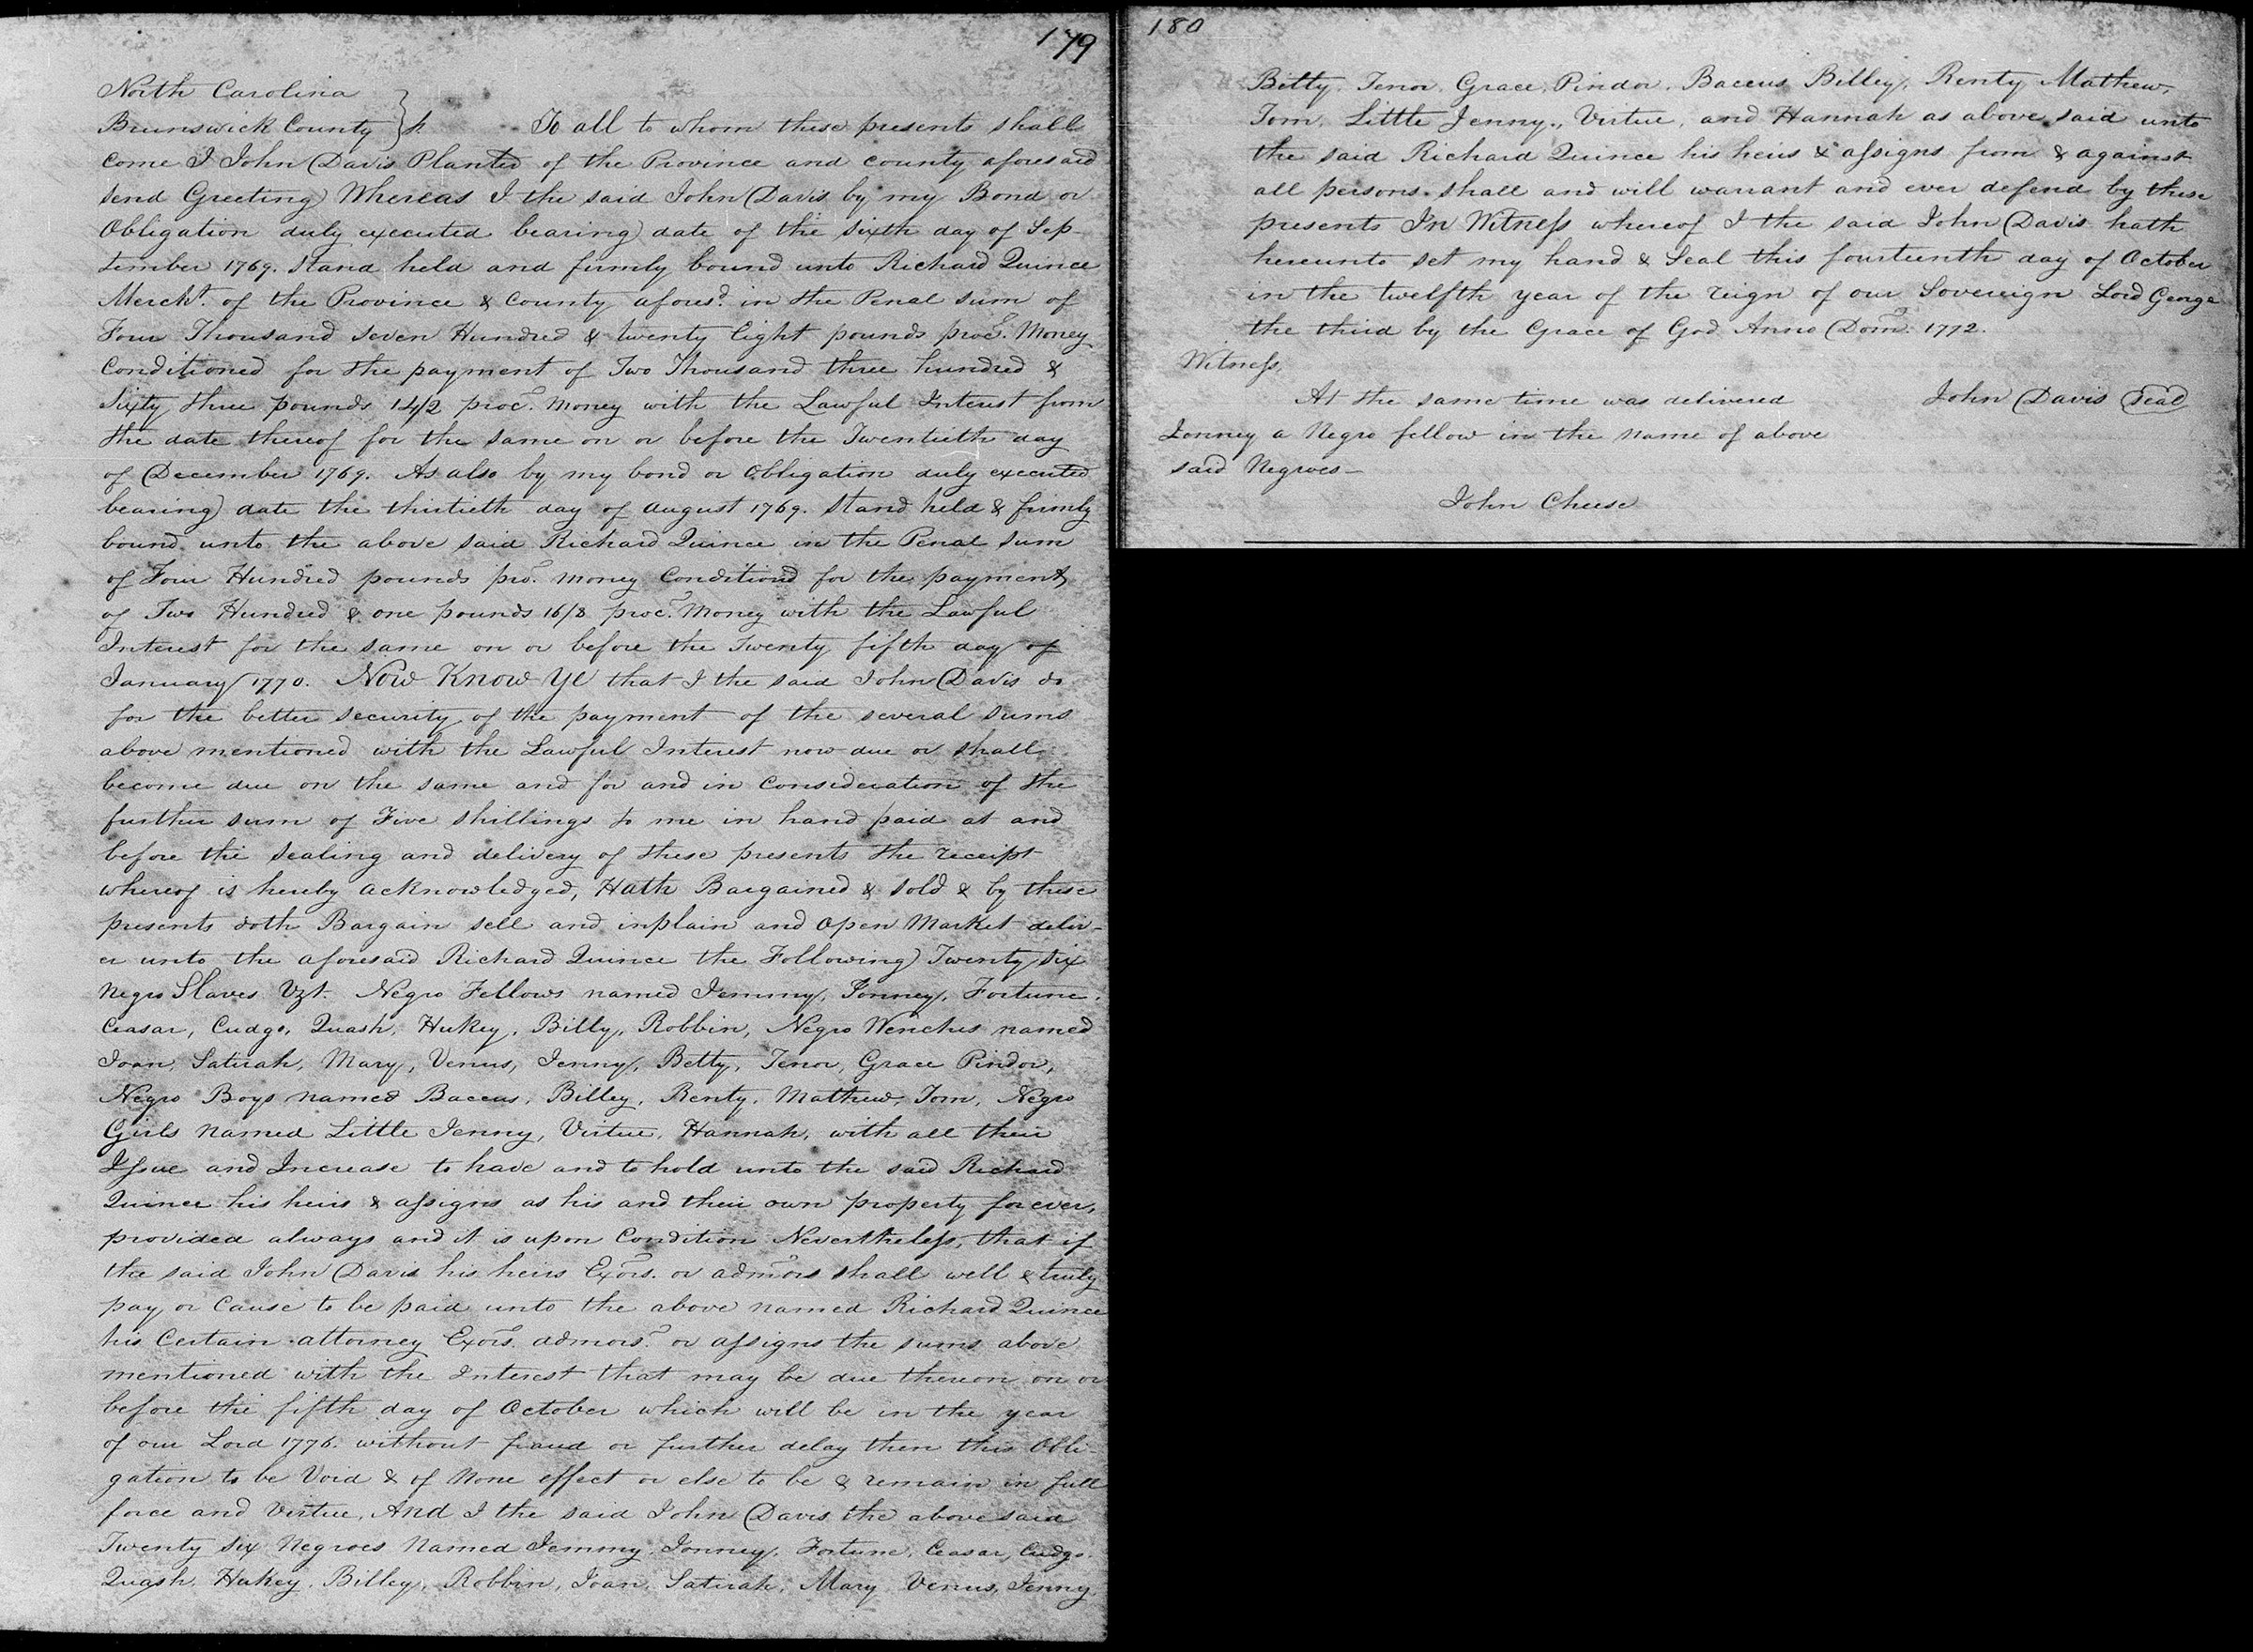 179
North Carolina
Brunswick County } To all to whom these presents shall
Come I John Davis Planter of the Province and county aforesaid
send Greeting Whereas I the said John Davis by my Bond or
Obligation duly executed bearing date of the sixth day of Sep-
tember 1769. stand held and firmly bound unto Richard Quince
Mercht. of the Province & County aforesd. in the Penal sum of
Four Thousand seven Hundred & twenty Eight pounds procs. Money
Conditioned for the payment of Two Thousand three hundred &
Sixty three pounds 14/2 proc. money with the Lawful Interest from
the date thereof for the same on or before the Twentieth day
of December 1769. As also by my bond or obligation duly executed
bearing date the thirtieth day of August 1769. stand held & firmly
bound unto the above said Richard Quince in the Penal sum
of Four Hundred pounds pro. money Conditiond for the payment
of Two Hundred & one pounds 16/8 proc. Money with the Lawful
Interest for the same on or before the Twenty fifth day of
January 1770. Now Know Ye that I the said John Davis do
for the better security of the payment of the several sums
above mentioned with the Lawful Interest now due or shall
become due on the same and for and in Consideration of the
further sum of Five shillings to me in hand paid at and
before the sealing and delivery of these presents the receipt
whereof is hereby acknowledged, Hath Bargained & sold & by these
presents doth Bargain sell and inplain and open Market deliv-
er unto the aforesaid Richard Quince the Following Twenty six
Negro Slaves Vzt. Negro Fellows named Jemmy, Jonney, Fortune,
Ceasar, Cudgo, Quash, Hukey, Billy, Robbin, Negro Wenches named
Joan, Satirah, Mary, Venus, Jenny, Betty, Tenor, Grace Pindor,
Negro Boys named Baccus, Billey, Renty, Mathew, Tom, Negro
Girls named Little Jenny, Virtue, Hannah, with all their
Issue and Increase to have and to hold unto the said Richard
Quince his heirs & assigns as his and their own property for ever,
provided always and it is upon Condition Nevertheless, that if
the said John Davis his heirs Exors. or admors shall well & truly
pay or Cause to be paid unto the above named Richard Quince
his Certain attorney Exors. admors. or assigns the sums above
mentioned with the Interest that may be due thereon on or
before the fifth day of October which will be in the year
of our Lord 1776. without fraud or further delay then this Obli-
gation to be Void & of None effect or else to be & remain in full
force and Virtue, And I the said John Davis the above said
Twenty six Negroes Named Jemmy, Jonney, Fortune, Ceasar, Cudgo,
Quash, Hukey, Billey, Robbin, Joan, Satirah, Mary Venus, Jenny
180
Betty, Tenor, Grace, Pindor, Baccus Billey, Renty Mathew,
Tom, Little Jenny, Virtue, and Hannah as above said unto
the said Richard Quince his heirs & assigns from & against
all persons shall and will warrant and ever defend by these
presents In Witness whereof I the said John Davis hath
hereunto set my hand & Seal this fourteenth day of October
in the twelfth year of the reign of our Sovereign Lord George
the third by the Grace of God Anno Dom. 1772.
Witness
At the same time was delivered John Davis Seal
Jonney a Negro fellow in the name of above
said Negroes—
John Cheese